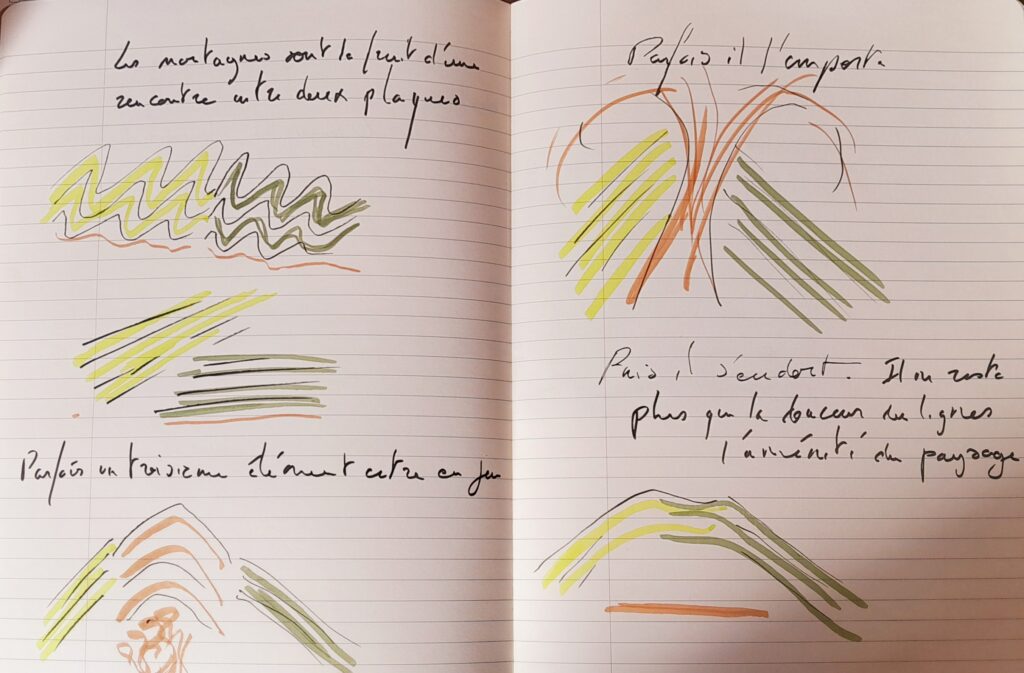 Les montagnes sont le fruit d'une
rencontre entre deux plaques
Parfois un troisième élément entre en jeu
Parfois il l'emporte.
Puis il s'endort. Il ne reste
plus que la douceur des lignes
l'aménité du paysage